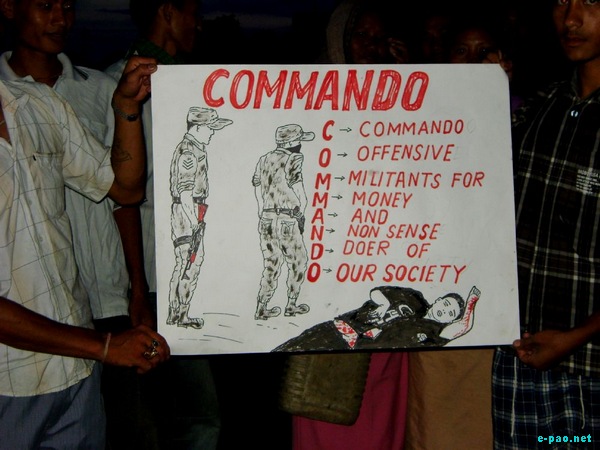 COMMANDO
C → COMMANDO
O → OFFENSIVE
M → MILITANTS FOR
M → MONEY
A → AND
N → NON SENSE
D → DOER OF
O → OUR SOCIETY
e-pao.net